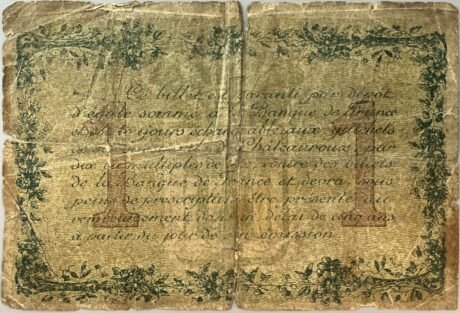 Ce billet est garanti par dépôt
d'égale somme à la Banque de France
et est toujours échangeable aux guichets
de Châteauroux, par
dix ou multiples de dix, contre des billets
de la Banque de France et devra, sous
peine de prescription être présenté au
remboursement dans un délai de cinq ans
à partir du jour de son émission.